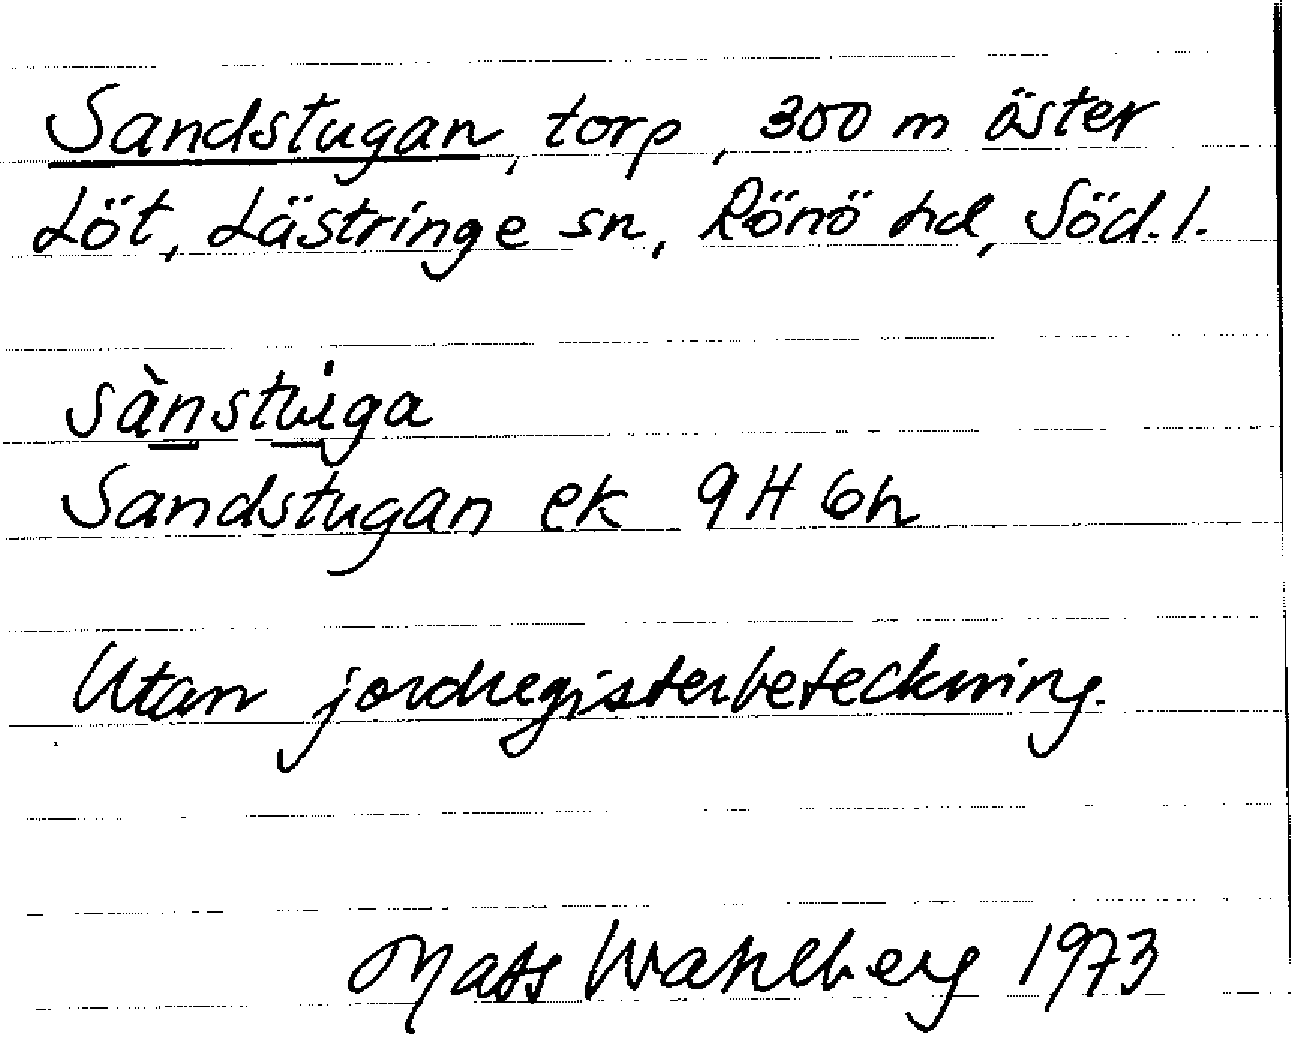 Sandstugan, torp, 300 m öster
Löt, Lästringe sn, Rönö hd, Söd. l.
sànstuga
Sandstugan ek 9H 6h
Utan jordregisterbeteckning.
Mats Wahlberg 1973